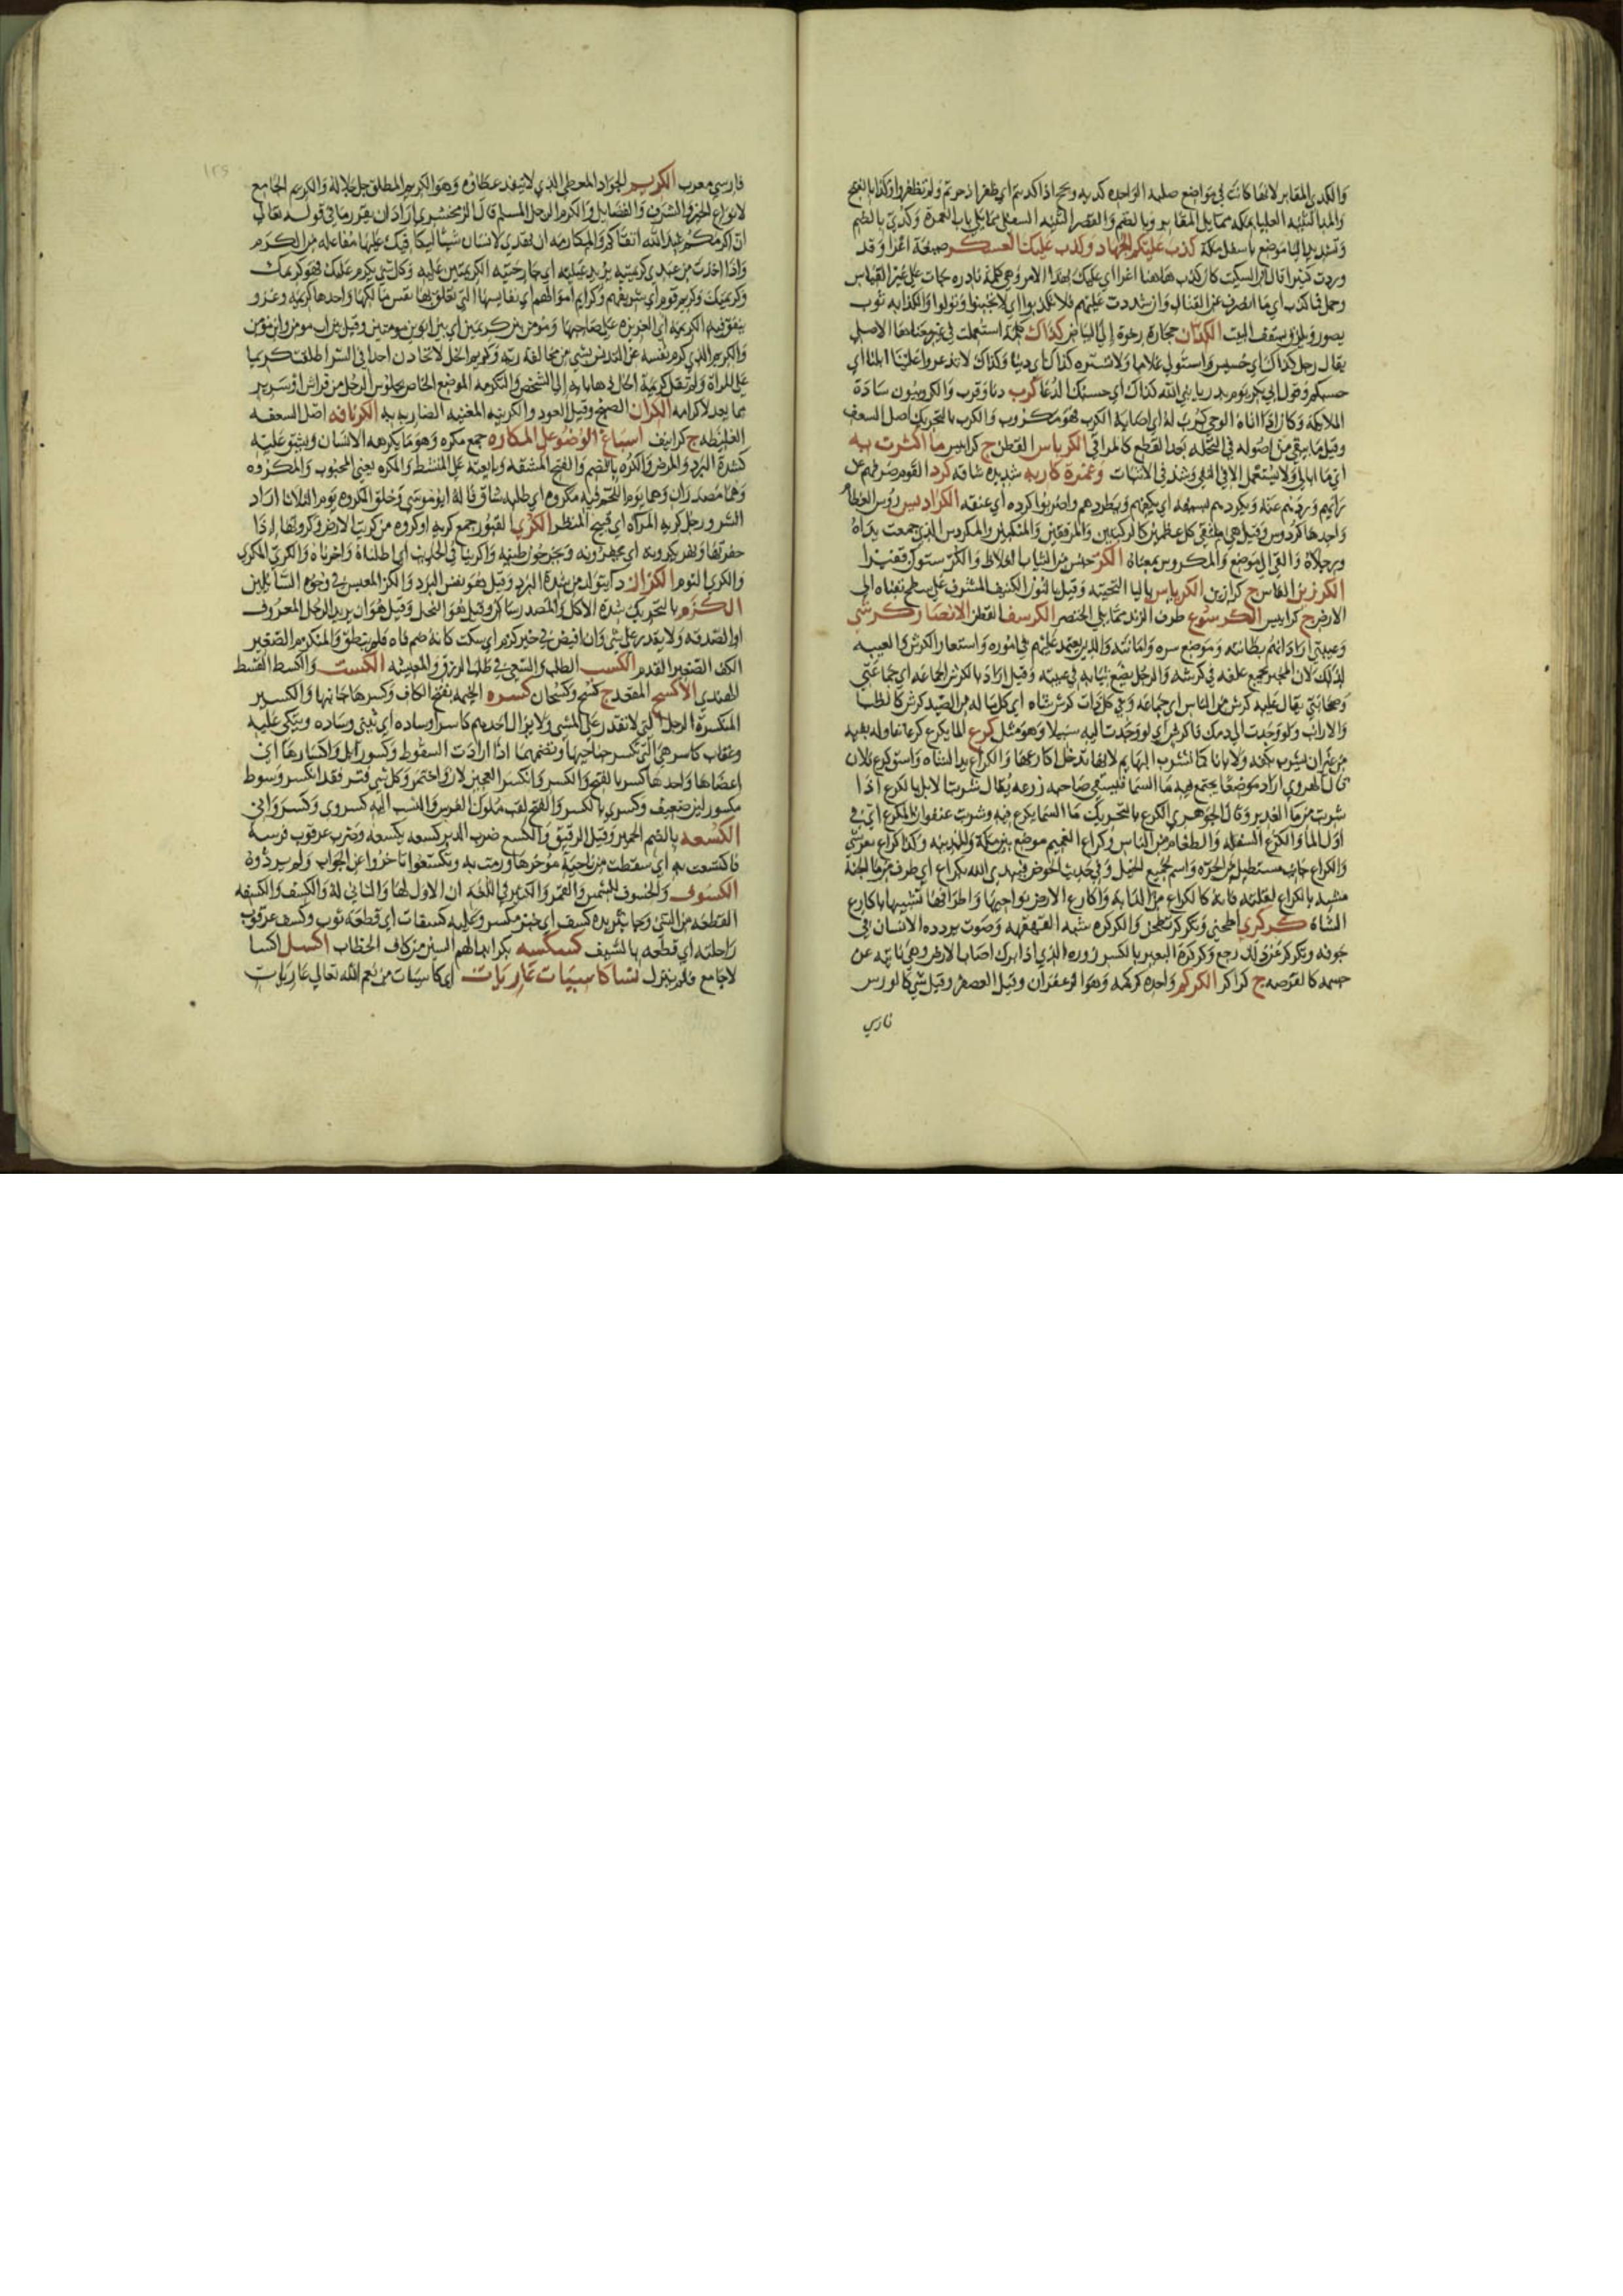 والكدى المقابر لانها كانت في مواضع صلبة الواحدة كدية ويجوز اذا اكديتم اي ظفر اذ حرتم ولم تظفروا وكداء بالفتح
والمد الثنية العليا بمكة مما يلي المقابر وبالضم والقصر الثنية السفلى مما يلي باب العمرة وكدي بالضم
وتشديد اليا موضع باسفل مكة كذب عليكم الجهاد وكذب عليك العسكر صيغة اغرا وقد
وردت كثيرا قال ابن السكيت كان كذب هاهنا اغرا اي عليك بهذا الامر وهي كلمة نادرة جات على غير القياس
وحمل فما كذب اي ما انصرف عن القتال وان شددت عليهم فلا تكذبوا اي لا تجبنوا وتولوا والكذابة ثوب
يصور ويلزق بسقف البيت الكذان حجارة رخوة الى البياض كذاك كلمة استعملت في غير معناها الاصلي
يقال رجل كذاك اي خسيس واستولي غلاما ولا تشتره كذاك اي دنيا وكذاك لا تذعروا علينا ابلنا اي
حسبكم وقول ابي بكر يوم بدر يا نبي الله كذاك اي حسبك الدعا كرب دنا وقرب والكروبيون سادة
الملايكة وكان اذا اتاه الوحي كرب له اي اصابه الكرب فهو مكروب والكرب بالتحريك اصل السعف
وقيل ما يبقى من اصوله في النخلة بعد القطع كالمراقي الكرباس القطن ج كرابيس ما اكثرت به
اي ما ابالي ولا يستعمل الا في النفي وشذ في الاثبات وغمرة كارثة شديدة شاقة كرد القوم صرفهم عن
رايهم وردهم عنه ويكردهم بسيفه اي يكفهم ويطردهم واضربوا كرده اي عنقه الكراديس رؤس العظام
واحدها كردوس وقيل هي ملتقى كل عظمين كالركبتين والمرفقين والمنكبين والمكردس الذي جمعت يداه
ورجلاه والقي الى موضع والمكروس بمعناه الكر جنس من الثياب الغلاظ والكر ستون قفيزا
الكرزين الفاس ج كرازين الكرياس باليا التحتية وقيل بالنون الكنيف المشرف على سطح بقناه الى
الارض ج كراييس الكرسوع طرف الزند مما يلي الخنصر الكرسف القطن الانصار كرشي
وعيبتي اراد انهم بطانته وموضع سره وامانته والذين يعتمد عليهم في اموره واستعار الكرش والعيبة
لذلك لان المجتر يجمع علفه في كرشه والرجل يضع ثيابه في عيبته وقيل اراد بالكرش الجماعة اي جماعتي
وصحابتي يقال عليه كرش من الناس اي جماعة وفي كل ذات كرش شاة اي كل ما له من الصيد كرش كالظبا
والارانب ولو وجدت الى دمك فاكرش اي لو وجدت اليه سبيلا وهو مثل كرع الما يكرع كرعا تناوله بفيه
من غير ان يشرب بكفه ولا باناء كما تشرب البهايم لانها تدخل اكارعها والكراع يد الشاة واستوى كرع فلان
قال الهروي اراد موضعا يجتمع فيه ما السما فيسقي صاحبه زرعه يقال شربت الابل بالكرع اذا
شربت من ما الغدير وقال الجوهري الكرع بالتحريك ما السما يكرع فيه وشربت عنفوان المكرع اي في
اول الما والكرع السفلة والطغام من الناس وكراع الغميم موضع بين مكة والمدينة وكذا كراع هرشى
والكراع جانب مستطيل من الحرة واسم لجميع الخيل وفي حديث الحوض فيبدي الله بكراع اي طرف من ما الجنة
مشبه بالكراع لقلته فانه كالكراع من الدابة واكارع الارض نواحيها واطرافها تشبيها باكارع
الشاة كركري اطحني وتكركر تطحن والكركرة شبه القهقهة وصوت يردده الانسان في
جوفه وتكركر عن ذلك رجع وكركرة البعير بالكسر زوره الذي اذا برك اصاب الارض وهي ناتئة عن
جسمه كالقرصة ج كراكر الكركم واحده كركمة وهو الزعفران وقيل العصفر وقيل شي كالورس
فارسي
فارسي معرب الكريم الجواد المعطي الذي لا ينفد عطاؤه وهو الكريم المطلق جل جلاله والكريم الجامع
لانواع الخير والشرف والفضايل والكرم الرجل المسلم قال الزمخشري اراد ان يقرر ما في قوله تعالى
ان اكرمكم عند الله اتقاكم والمكارمة ان تهدي لانسان شيا ليكافيك عليها مفاعلة من الكرم
واذا اخذت من عبدي كريمتيه يريد عينيه اي جارحتيه الكريمتين عليه وكل شي يكرم عليك فهو كريمك
وكريمتك وكريم قوم اي شريفهم وكرايم اموالهم اي نفايسها التي تتعلق بها نفس مالكها واحدها كريمة وغزو
ينفق فيه الكريمة اي العزيزة على صاحبها ومومن بين كريمين اي بين ابوين مومنين وقيل بين اب مومن وابن مومن
والكريم الذي كرم نفسه عن التدنس بشي من مخالفة ربه وكريم الخل لا تخادن احدا في السر اطلقت كريما
على المراة ولم تقل كريمة اخال ذهابا به الى الشخص والتكرمة الموضع الخاص لجلوس الرجل من فراش او سرير
مما يعد لاكرامه الكران الصنج وقيل العود والكرينة المغنية الضاربة به الكرنافة اصل السعفة
الغليظة ج كرانيف اسباغ الوضوء على المكاره جمع مكره وهو ما يكرهه الانسان ويشق عليه
كشدة البرد والمرض والكره بالضم والفتح المشقة وبايعته على المنشط والمكره يعني المحبوب والمكروه
وهما مصدران وهذا يوم اللحم فيه مكروه اي طلبه شاق قاله ابو موسى وخلق المكروه يوم الثلاثا اراد
الشر ورجل كريه المرآة اي قبيح المنظر الكرى القبور جمع كرية او كروة من كريت الارض وكروتها اذا
حفرتها ونهر يكرونه اي يحفرونه ويخرجون طينه واكرينا في الحديث اي اطلناه واخرناه والكري المكري
والكرى النوم الكزاز داء يتولد من شدة البرد وقيل هو نفس البرد والكز المعبس في وجوه السايلين
الكزم بالتحريك شدة الاكل والمصدر ساكن وقيل هو البخل وقيل هو ان يريد الرجل المعروف
او الصدقة ولا يقدر على شي وان افيض في خير كزم اي سكت كانه ضم فاه فلم ينطق والمنكزم الصغير
الكف الصغير القدم الكسب الطلب والسعي في طلب الرزق والمعيشة الكست والكسط القسط
الهندي الاكسح المقعد ج كسح وكسحان كسره الخيمة بفتح الكاف وكسرها جانبها والكسير
المنكسرة الرجل التي لا تقدر على المشي ولا يزال احدهم كاسرا وساده اي يثني وساده ويتكي عليه
وعقاب كاسر هي التي تكسر جناحيها وتضمهما اذا ارادت السقوط وكسور ابل واكسارها اي
اعضاها واحدها كسر بالفتح والكسر وانكسر العجين لان واختمر وكل شي فتر فقد انكسر وسوط
مكسور لين ضعيف وكسرى بالكسر والفتح لقب ملوك الفرس والنسب اليه كسروي وكسرواني
الكسعة بالضم الحمير وقيل الرقيق والكسع ضرب الدبر كسعه يكسعه وضرب عرقوب فرسه
فاكتسعت به اي سقطت من ناحية موخرها ورمت به وتكسعوا تاخروا عن الجواب ولم يردوه
الكسوف والخسوف للشمس والقمر والكثير في اللغة ان الاول لها والثاني له والكسف والكسفة
القطعة من الشي وجا بثريدة كسف اي خبز مكسر وعليه كسفات اي قطعة ثوب وكسف عرقوب
راحلته اي قطعه بالسيف كسكسة بكر ابدالهم السين من كاف الخطاب اكسل اكسا
لا جامع فلم ينزل نسا كاسيات عاريات اي كاسيات من نعم الله تعالى عاريات